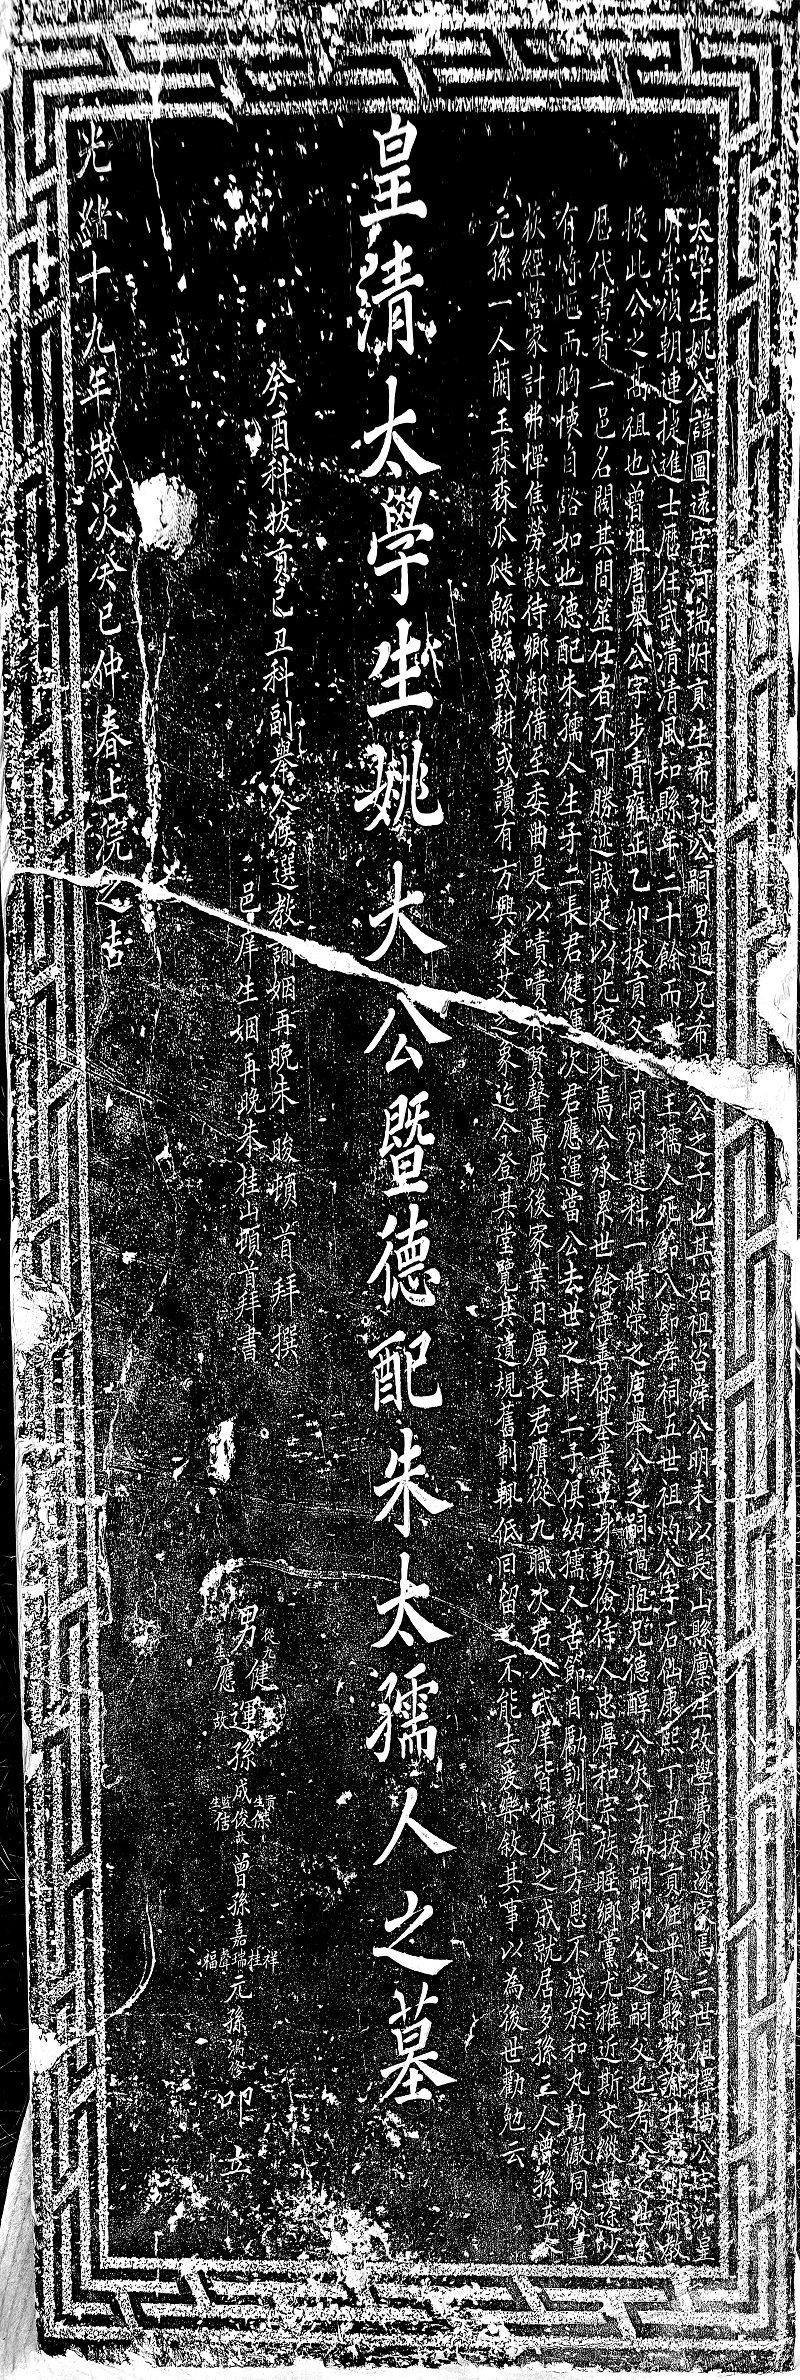 太學生姚公諱圖遠字可瑞附貢生希孔公嗣男過兄希公之子也其始祖浴 公明末以長山縣廩生改學 縣遂家焉二世祖擇揚公字
明崇禎朝連捷進士歷任武清清風知縣年二十餘而 王孺人死節入節孝祠五世祖灼公字石仙康熙丁丑拔貢任平陰縣教諭
此公之高祖也曾祖唐舉公字步青雍正乙卯拔貢父 同列選科一時榮之唐舉公乏嗣過胞兄德醇公次子為嗣即公之嗣父也考公之世系
歷代書香一邑名閥其間筮仕者不可勝述誠足以光家乘焉公承累世餘澤善保基業立身勤儉待人忠厚和宗族睦鄉黨尤雅近斯文縱世途少
有崎嶇而胸懷自豁如也德配朱孺人生子二長君健運次君應運當公去世之時二子俱幼孺人苦節自勵訓教有方恩不減於和丸勤儼同於畫
荻經營家計弗憚焦勞款待鄉鄰備至委曲是以嘖嘖有賢聲焉厥後家業日廣長君膺從九職次君入武庠皆孺人之成就居多孫三人曾孫五人
元孫一人蘭玉森森瓜瓞緜緜或耕或讀有方興未艾之象迄今登其堂覽其遺規舊制輒低回留之不能去爰樂敘其事以為後世勸勉云
皇清太學生姚大公暨德配朱太孺人之墓
癸酉科拔貢己丑科副舉人候選教諭姻再晚朱 畯頓首拜撰
邑庠生姻再晚朱桂山頓首拜書
男 從九健 應 運 孫 成 俊 保 信 曾孫 嘉 祥 桂 瑞 聲 福 元孫 叩立
光緒十九年歲次癸巳仲春上浣之吉